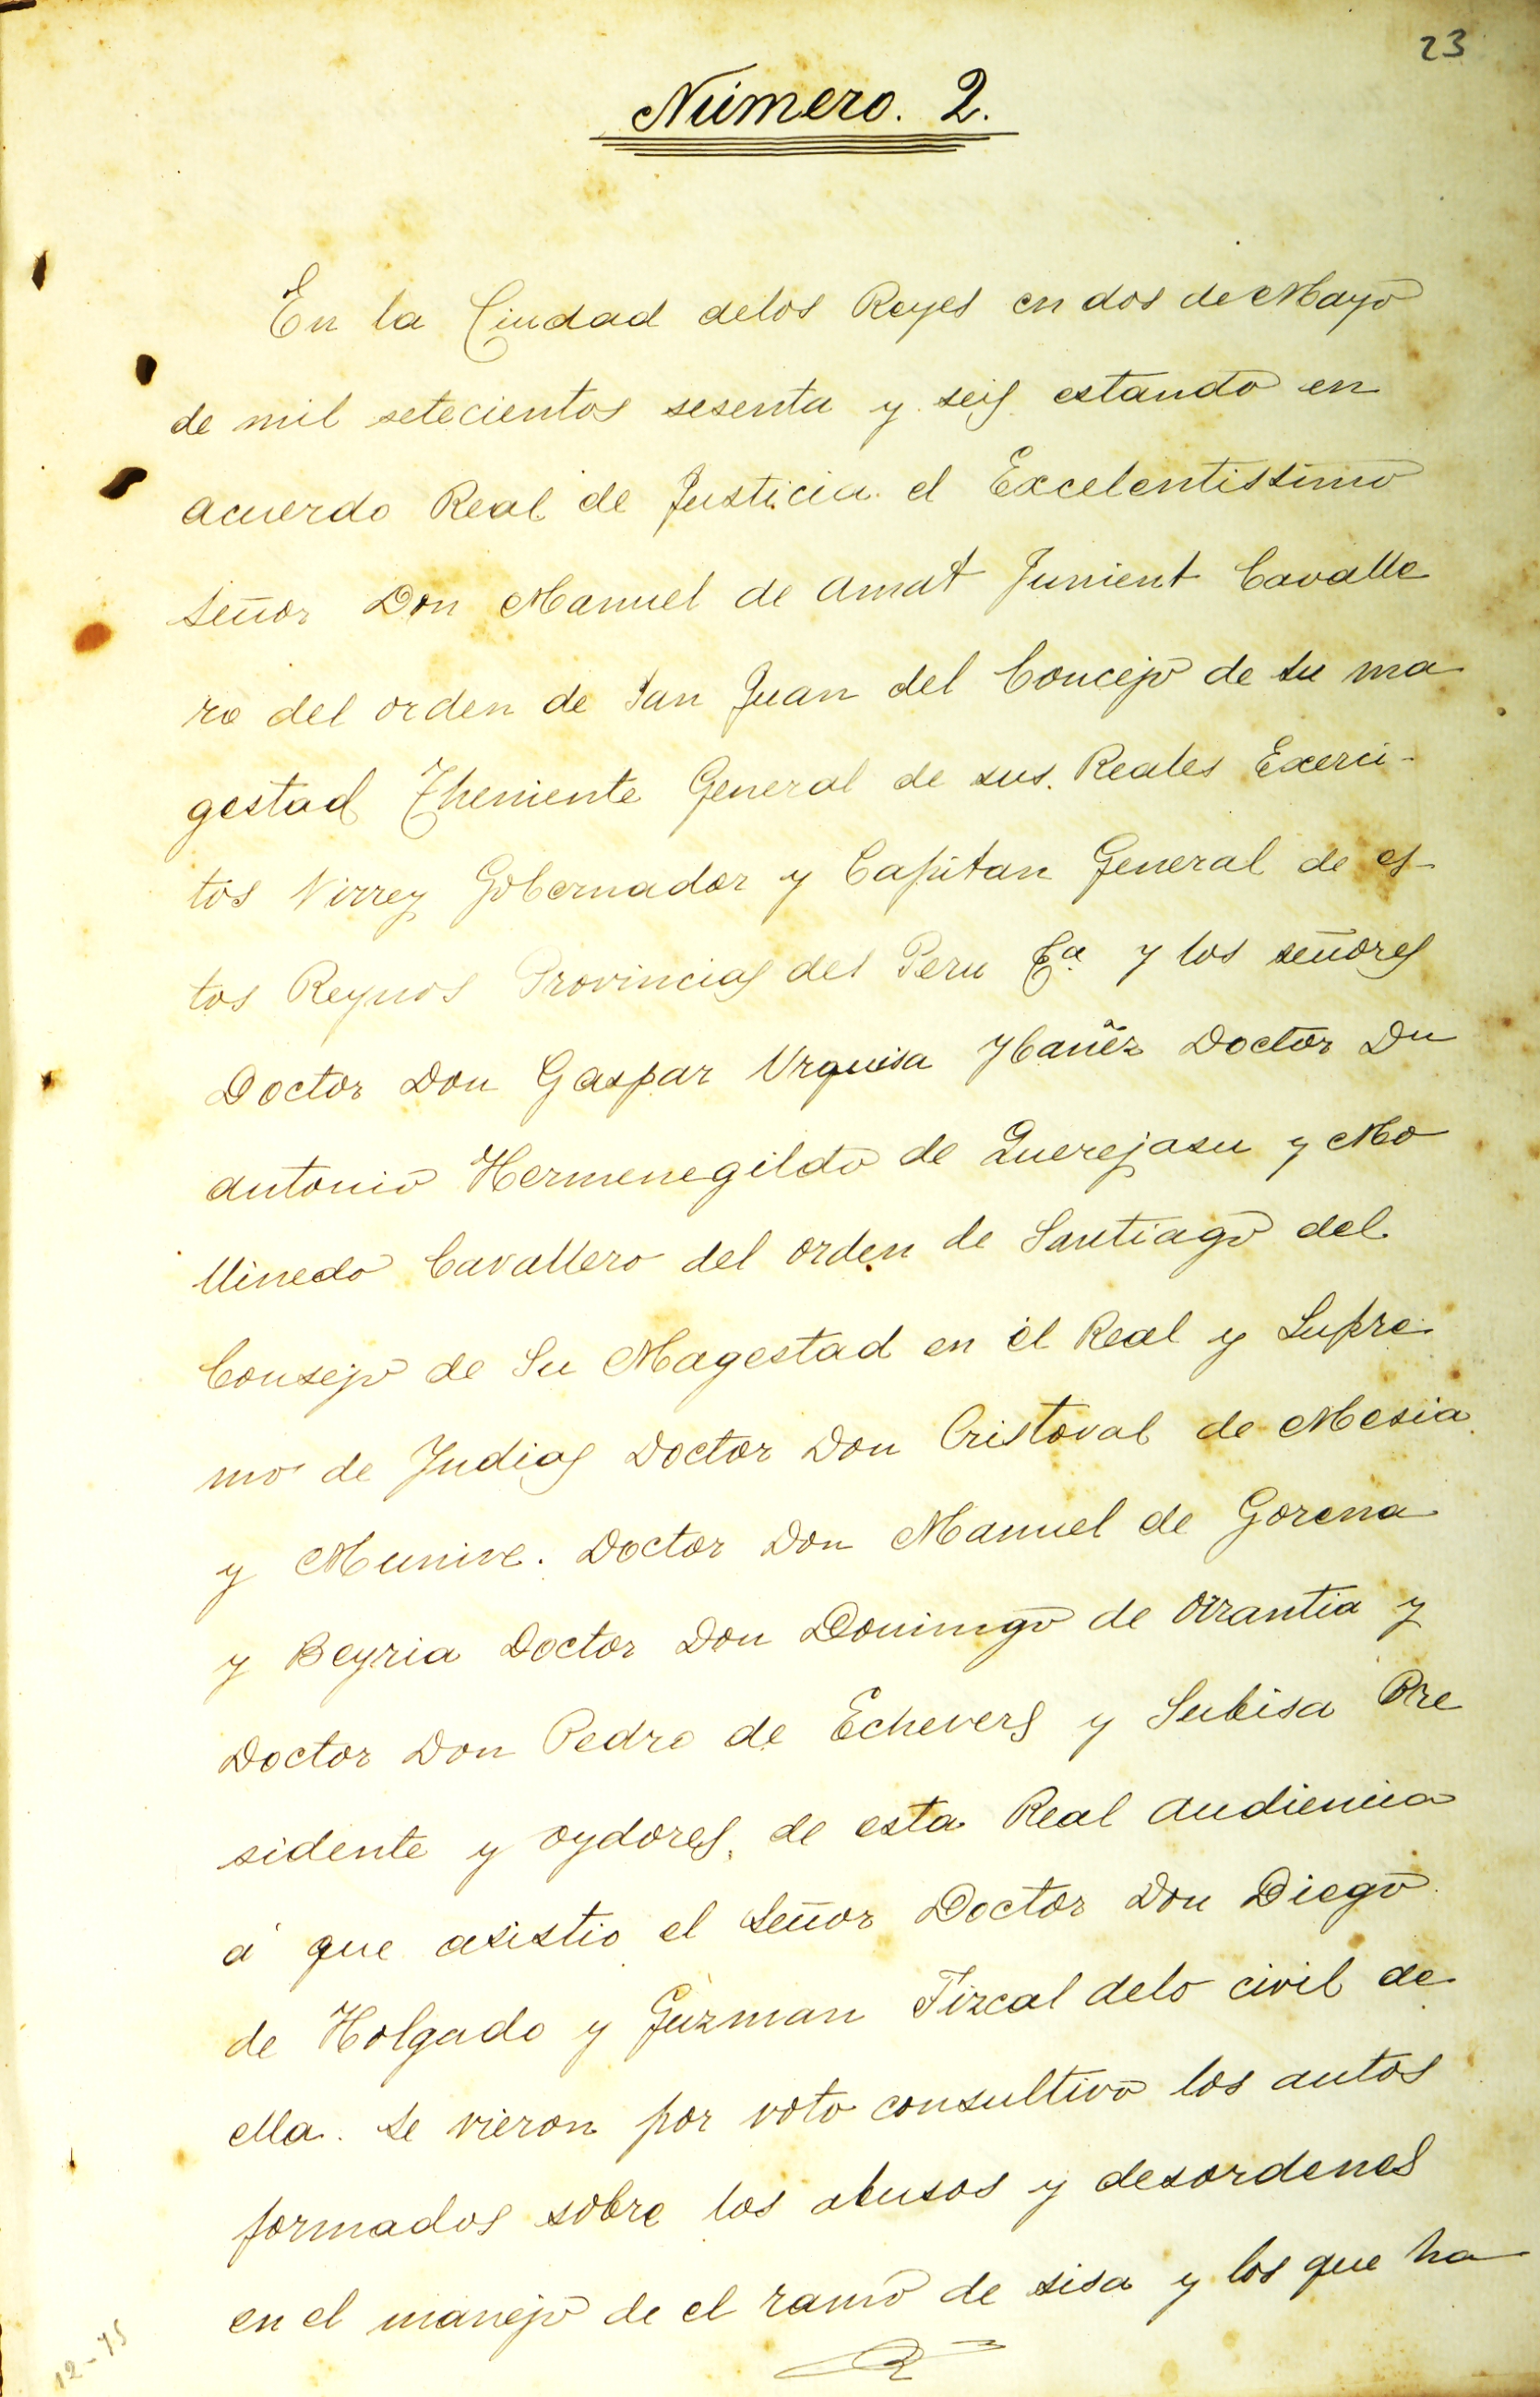 23
Número. 2.
En la Ciudad delos Reyes en dos de Mayo
de mil setecientos sesenta y seis estando en
acuerdo Real de Justicia el Excelentissimo
señor Don Manuel de Amat Junient Cavalle
ro del orden de San Juan del Concejo de su ma
gestad Theniente General de sus Reales Exerci-
tos Virrey Gobernador y Capitan General de es
tos Reynos Provincias del Peru Ea. y los señores
Doctor Don Gaspar Urquisa Ybañez Doctor Dn
Antonio Hermenegildo de Querejasu y Mo
llinedo Cavallero del orden de Santiago del
Consejo de Su Magestad en el Real y Supre
mo de Indias Doctor Don Cristoval de Mesia
y Munive. Doctor Don Manuel de Gorena
y Beyria Doctor Don Domingo de Orrantia y
Doctor Don Pedro de Echevers y Subisa Pre
sidente y oydores, de esta Real audiencia
á que asistio el Señor Doctor Don Diego
de Holgado y Guzman Fizcal delo civil de
ella. se vieron por voto consultivo los autos
formados sobre los abusos y desordenes
en el manejo de el ramo de sisa y los que ha
12-75